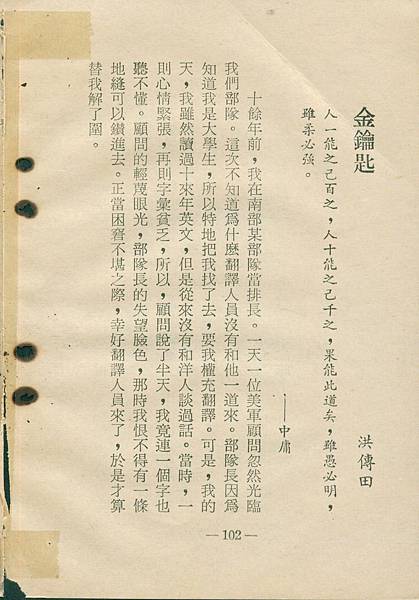 金鑰匙
洪傳田
人一能之己百之，人十能之己千之，果能此道矣，雖愚必明，
雖柔必強。
——中庸
十餘年前，我在南部某部隊當排長。一天一位美軍顧問忽然光臨
我們部隊。這次不知道爲什麼翻譯人員沒有和他一道來。部隊長因爲
知道我是大學生，所以特地把我找了去，要我權充翻譯。可是，我的
天，我雖然讀過十來年英文，但是從來沒有和洋人談過話。當時，一
則心情緊張，再則字彙貧乏，所以，顧問說了半天，我竟連一個字也
聽不懂。顧問的輕蔑眼光，部隊長的失望臉色，那時我恨不得有一條
地縫可以鑽進去。正當困窘不堪之際，幸好翻譯人員來了，於是才算
替我解了圍。
—102—